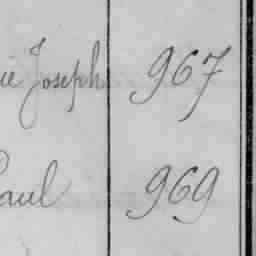 Joseph 967
Paul 969